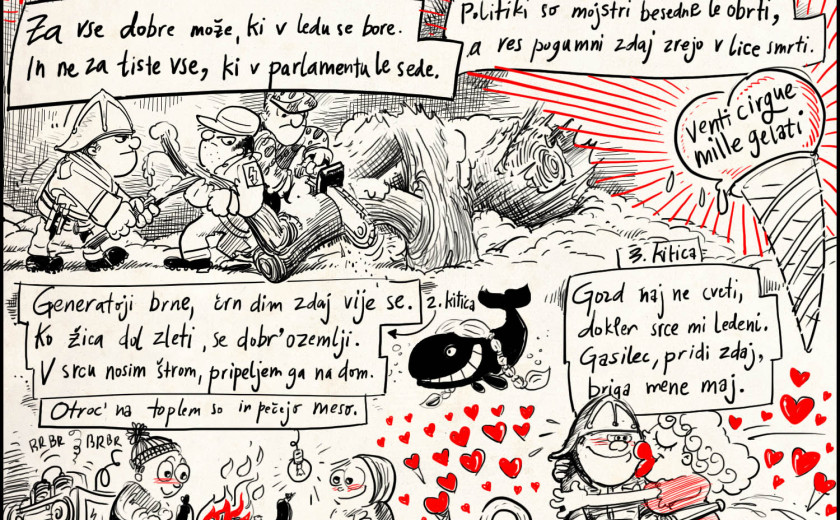 Za vse dobre može, ki v ledu se bore.
In ne za tiste vse, ki v parlamentu le sede.
Politiki so mojstri besedne le obrti,
a ves pogumni zdaj zrejo v lice smrti.
Venti cirque
mille gelati
Generatoji brne, črn dim zdaj vije se.
Ko žica dol zleti, se dobr'ozemlji.
V srcu nosim štrom, pripeljem ga na dom.
Otroc' na toplem so in pečejo meso.
2. kitica
3. kitica
Gozd naj ne cveti,
dokler srce mi ledeni.
Gasilec, pridi zdaj,
briga mene maj.
BRBR
BRBR